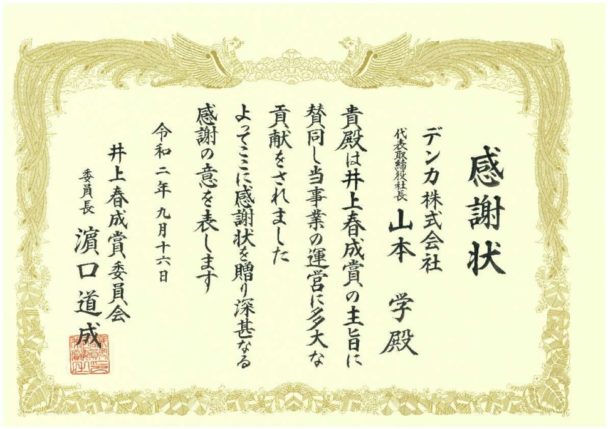 感謝状
デンカ株式会社
代表取締役社長 山本 学 殿
貴殿は井上春成賞の主旨に
賛同し当事業の運営に多大な
貢献をされました
よってここに感謝状を贈り深甚なる
感謝の意を表します
令和二年九月十六日
井上春成賞委員会
委員長 濵口道成